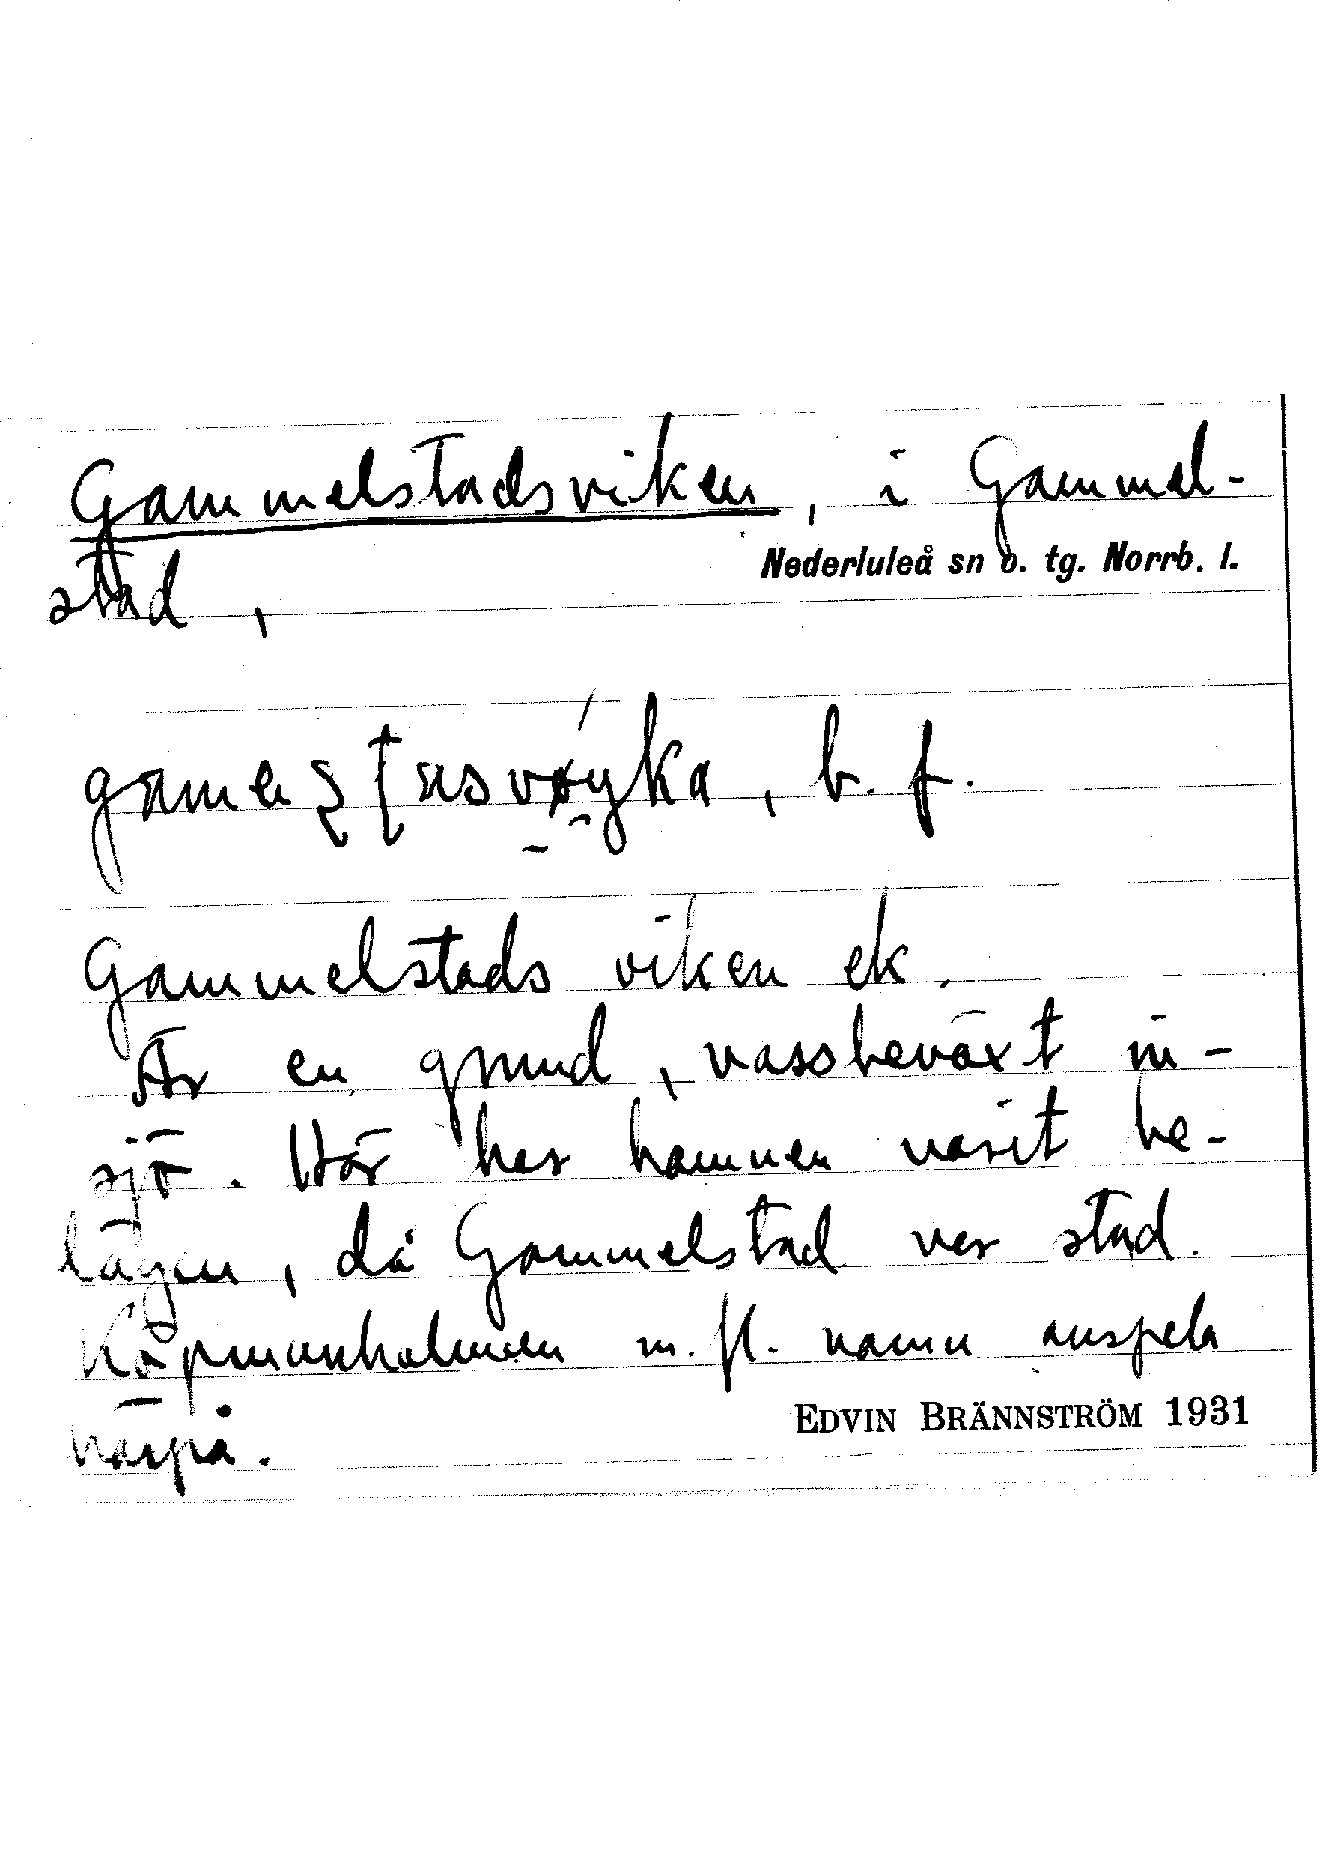 Gammelstadsviken, i Gammel-
Nederluleå sn o. tg. Norrb. l.
stad,
b. f.
Gammelstadsviken ek.
Är en grund, vassbeväxt in-
sjö. Här har hamnen varit be-
lägen, då Gammelstad var stad.
Köpmanholmen m. fl. namn anspela
härpå.
EDVIN BRÄNNSTRÖM 1931